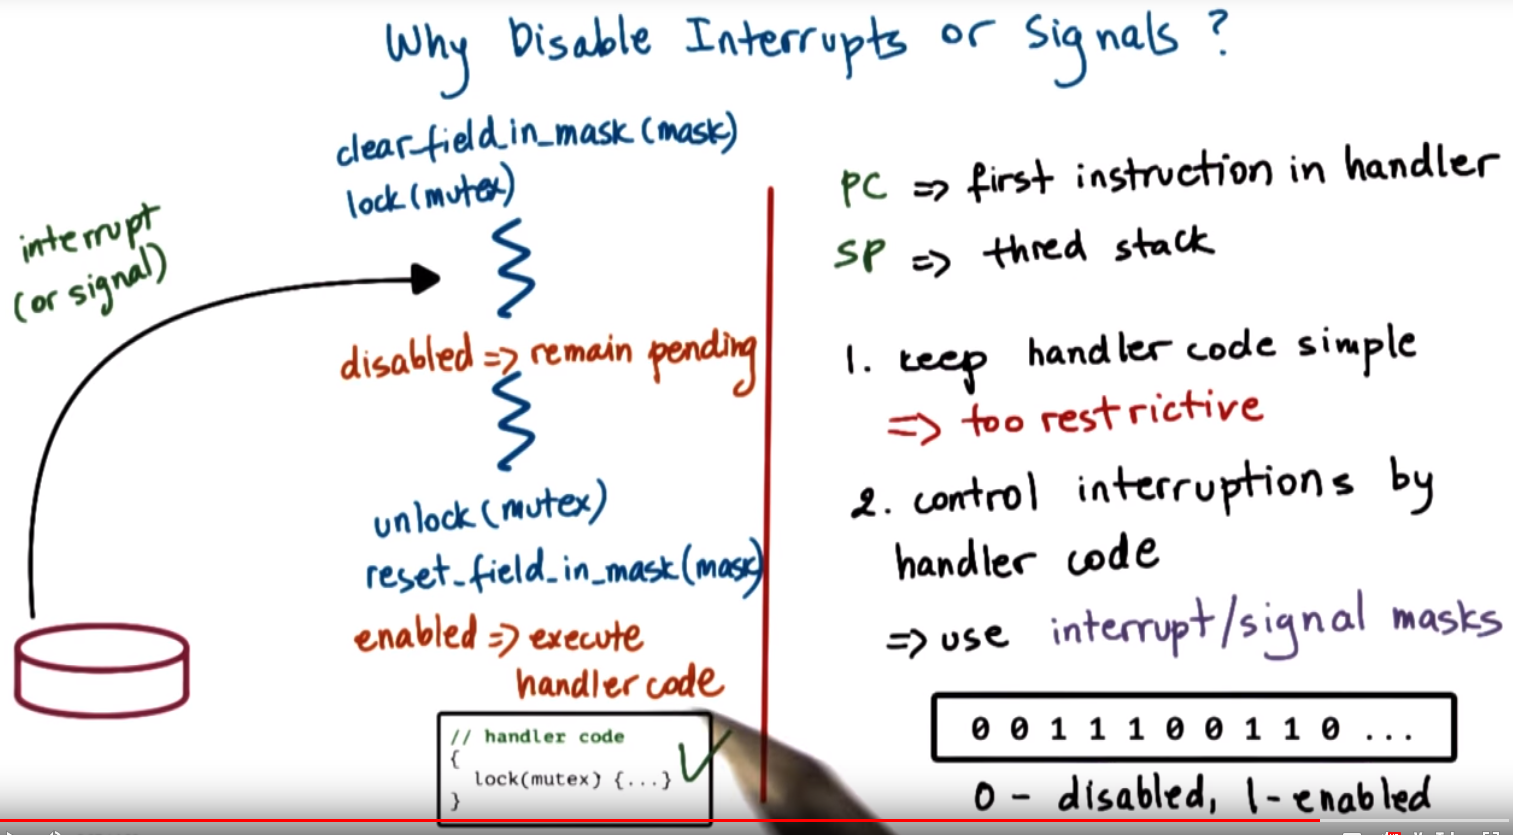 Why Disable Interrupts or Signals ?
clear_field_in_mask (mask)
lock (mutex)
interrupt
(or signal)
disabled => remain pending
unlock (mutex)
reset_field_in_mask (mask)
enabled => execute
handler code
// handler code
{
lock(mutex) {...}
}
PC => first instruction in handler
SP => thred stack
1. keep handler code simple
=> too restrictive
2. control interruptions by
handler code
=> use interrupt/signal masks
0 0 1 1 1 0 0 1 1 0 ...
0 - disabled, 1 - enabled